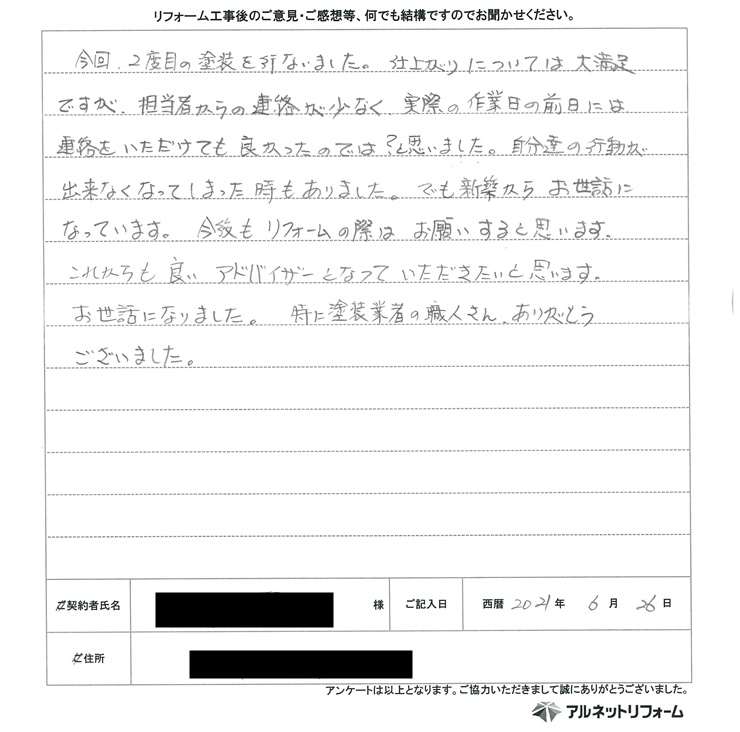 リフォーム工事後のご意見・ご感想等、何でも結構ですのでお聞かせください。
今回、2度目の塗装を行ないました。仕上がりについては大満足
ですが、担当者からの連絡が少なく、実際の作業日の前日には
連絡をいただけても良かったのでは?と思いました。自分達の行動が
出来なくなってしまった時もありました。でも新築からお世話に
なっています。今後もリフォームの際はお願いすると思います。
これからも良いアドバイザーとなっていただきたいと思います。
お世話になりました。特に塗装業者の職人さん、ありがとう
ございました。
ご契約者氏名 様 ご記入日 西暦 2021年 6月 26日
ご住所
アンケートは以上となります。ご協力いただきまして誠にありがとうございました。
アルネットリフォーム